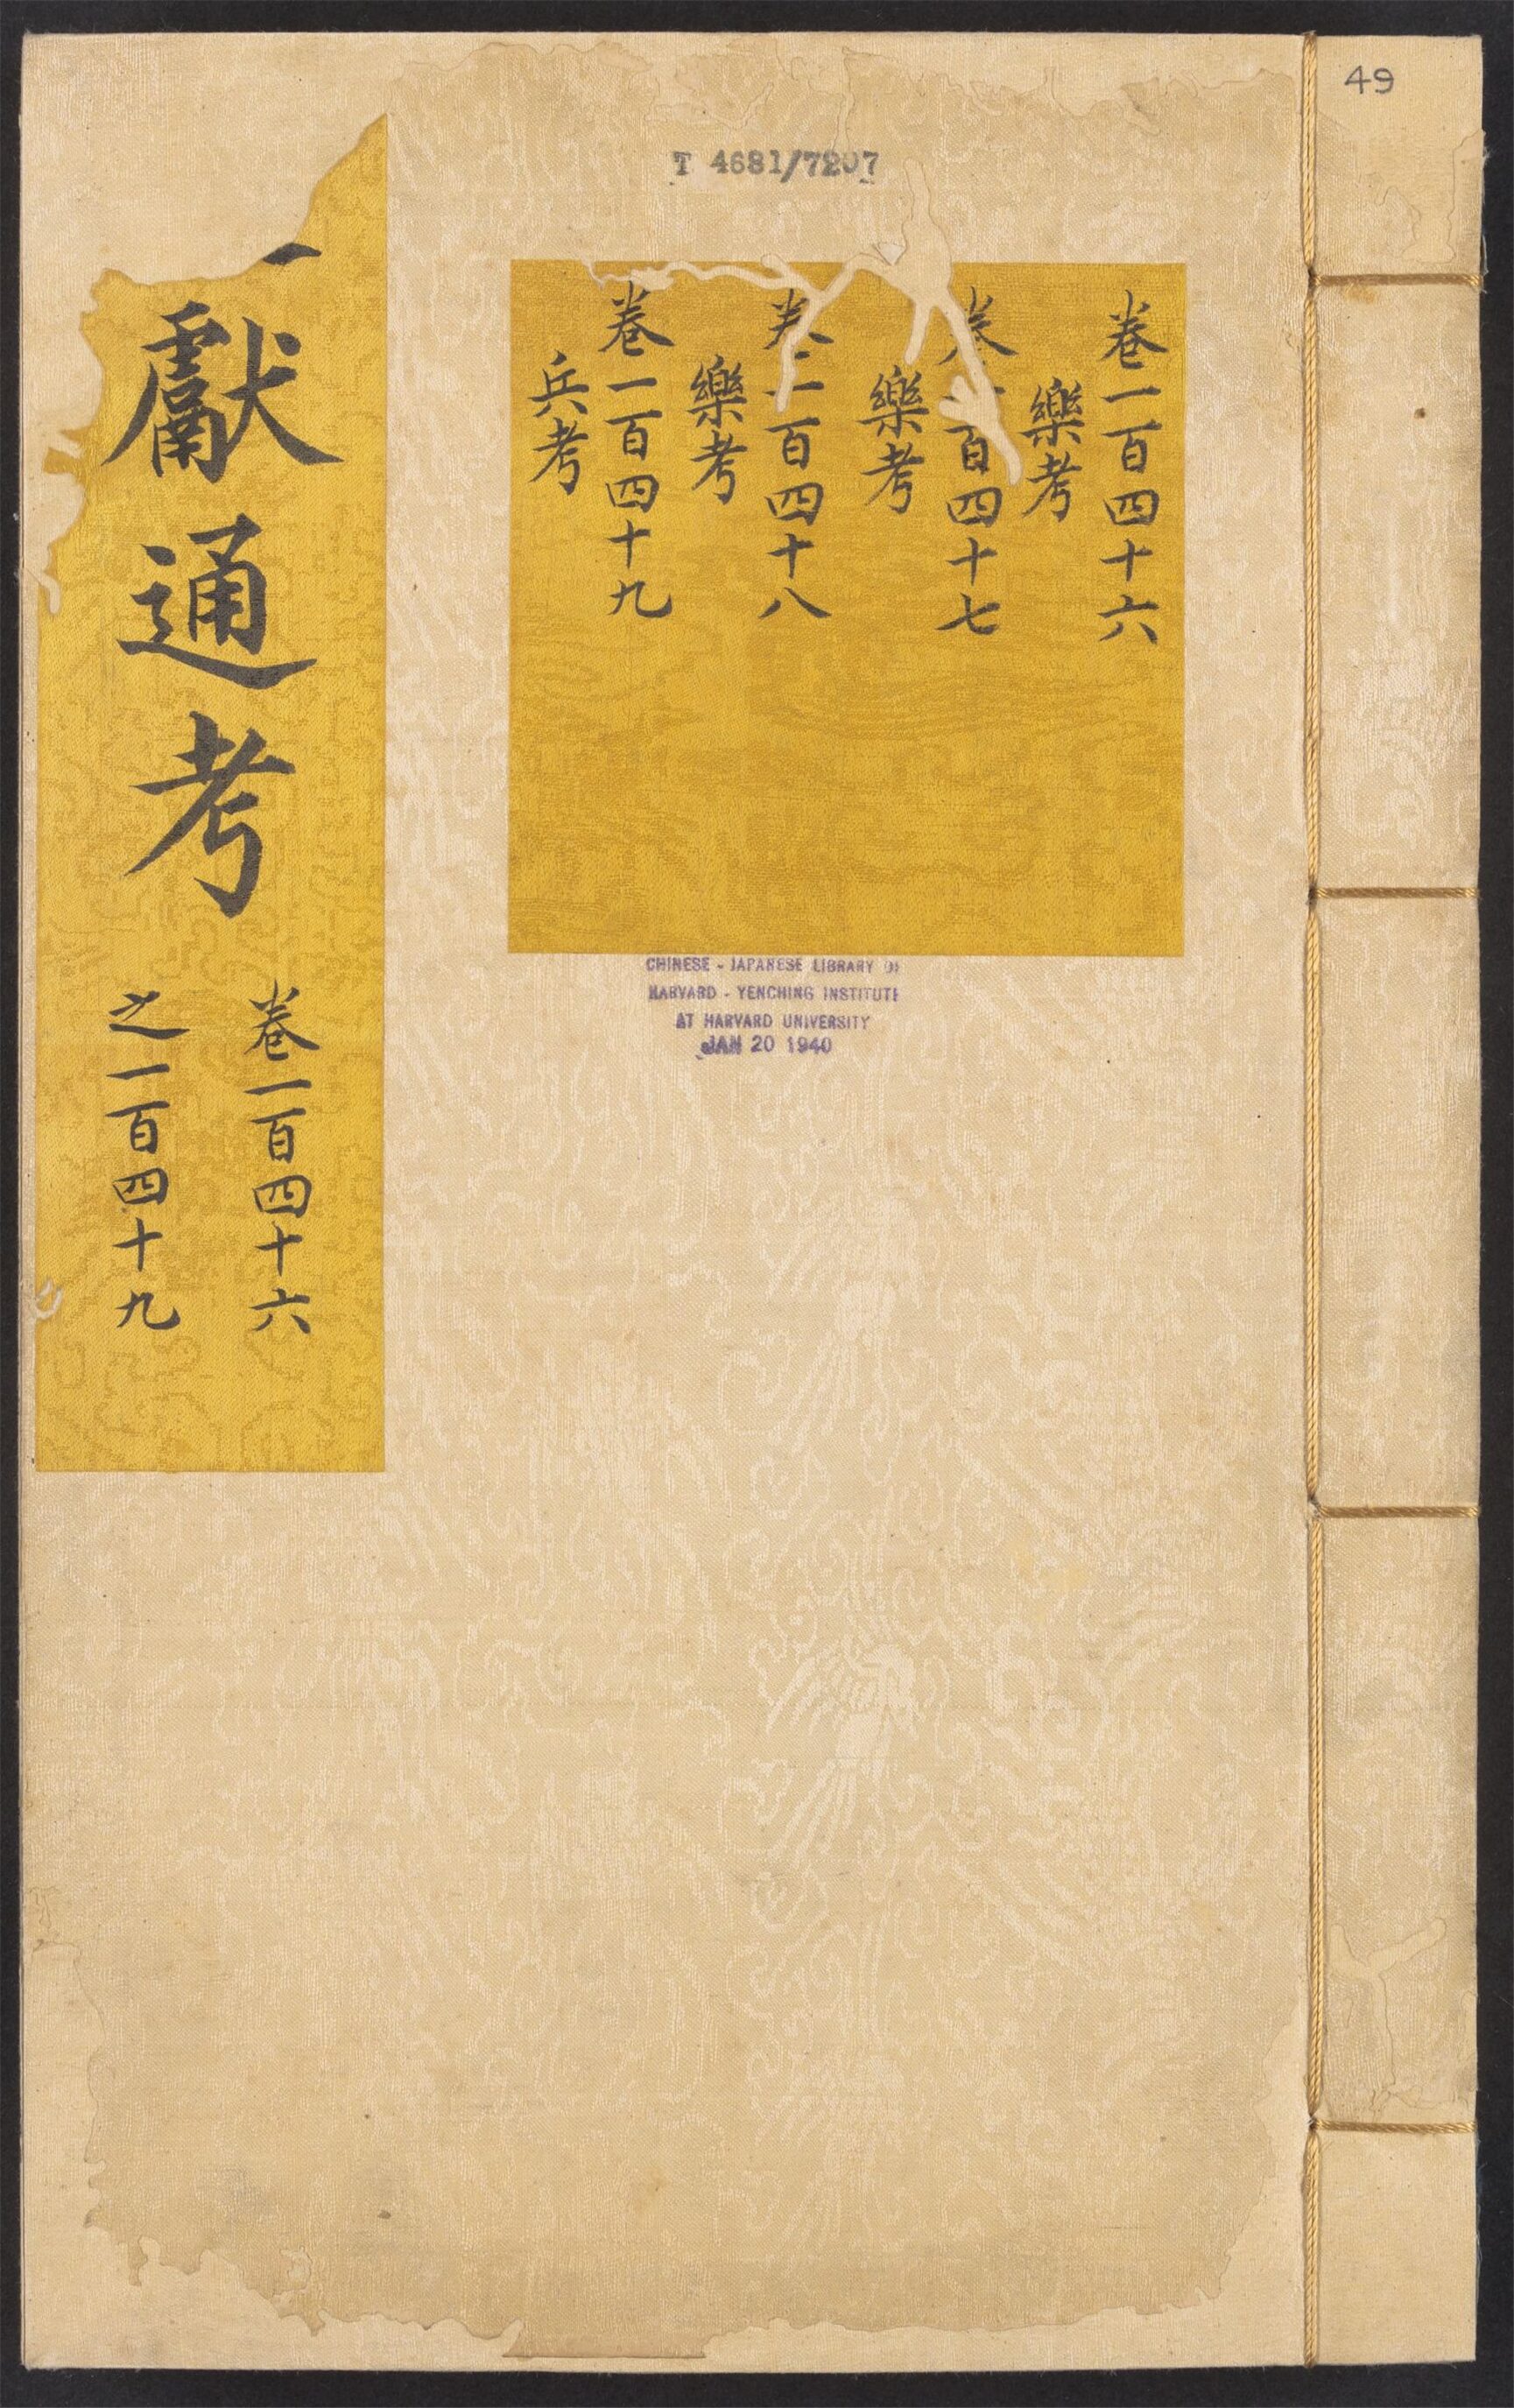 49
T 4681/7207
卷一百四十六
樂考
百四十七
樂考
百四十八
樂考
卷一百四十九
兵考
CHINESE - JAPANESE LIBRARY OF
HARVARD - YENCHING INSTITUTE
AT HARVARD UNIVERSITY
JAN 20 1940
獻通考
卷一百四十六
之一百四十九